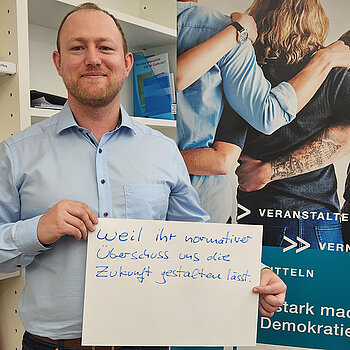 Weil ihr normativer
Überschuss uns die
Zukunft gestalten lässt.
VERANSTALTE
VERN
ITTELN
stark mac
Demokratie